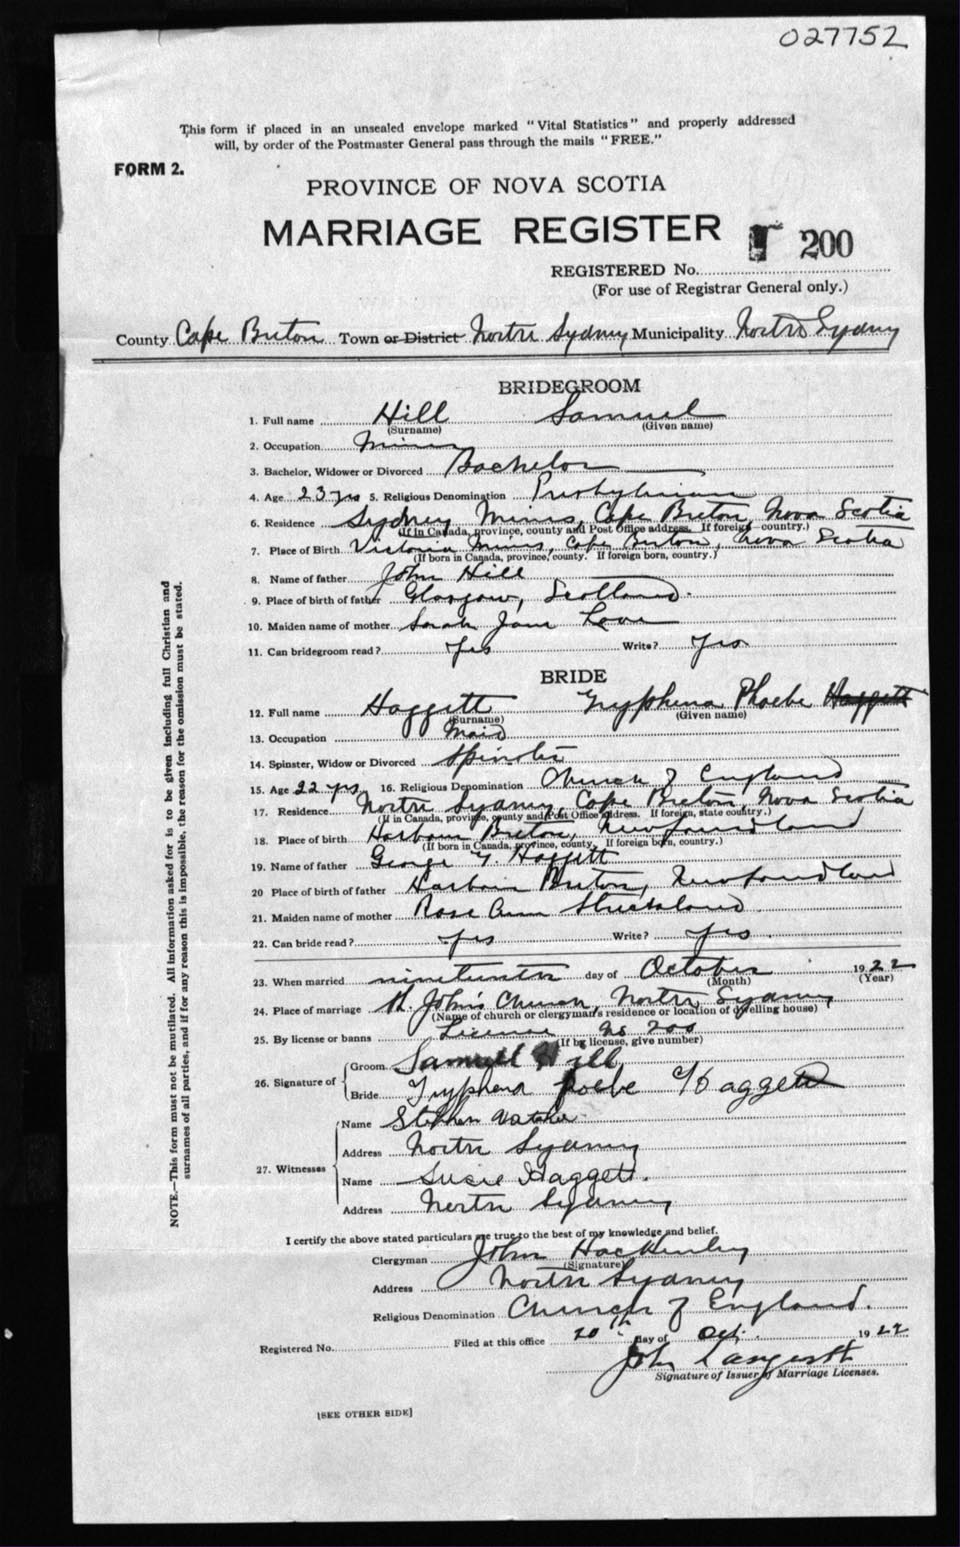 027752
This form if placed in an unsealed envelope marked "Vital Statistics" and properly addressed
will, by order of the Postmaster General pass through the mails "FREE."
FORM 2.
PROVINCE OF NOVA SCOTIA
MARRIAGE REGISTER
200
REGISTERED No.
(For use of Registrar General only.)
County Cape Breton Town or District North Sydney Municipality North Sydney
BRIDEGROOM
1. Full name Hill Samuel
(Surname) (Given name)
2. Occupation Miner
3. Bachelor, Widower or Divorced Bachelor
4. Age 23 yrs 5. Religious Denomination Presbyterian
6. Residence Sydney Mines, Cape Breton, Nova Scotia
(If in Canada, province, county and Post Office address. If foreign country.)
7. Place of Birth Victoria Mines, Cape Breton, Nova Scotia
(If born in Canada, province, county. If foreign born, country.)
8. Name of father John Hill
9. Place of birth of father Glasgow, Scotland.
10. Maiden name of mother Sarah Jane Love
11. Can bridegroom read? Yes Write? Yes
BRIDE
12. Full name Haggett Tryphena Phoebe Haggett
(Surname) (Given name)
13. Occupation Maid
14. Spinster, Widow or Divorced Spinster
15. Age 22 yrs 16. Religious Denomination Church of England
17. Residence North Sydney, Cape Breton, Nova Scotia
(If in Canada, province, county and Post Office address. If foreign, state country.)
18. Place of birth Harbour Breton, Newfoundland
(If born in Canada, province, county. If foreign born, country.)
19. Name of father George T. Haggett
20 Place of birth of father Harbour Breton, Newfoundland
21. Maiden name of mother Rose Ann Strickland
22. Can bride read? Yes Write? Yes.
23. When married nineteenth day of October 1922
(Month) (Year)
24. Place of marriage St. John's Church, North Sydney
(Name of church or clergyman's residence or location of dwelling house)
25. By license or banns License No 200
(If by license, give number)
26. Signature of
Groom Samuel Hill
Bride Tryphena Phoebe Haggett
27. Witnesses
Name Stephen Vatcher
Address North Sydney
Name Susie Haggett.
Address North Sydney
I certify the above stated particulars are true to the best of my knowledge and belief.
Clergyman John Hackenley
(Signature)
Address North Sydney
Religious Denomination Church of England.
Registered No. Filed at this office 20th day of Oct. 1922
John
Signature of Issuer of Marriage Licenses.
[SEE OTHER SIDE]
NOTE.—This form must not be mutilated. All information asked for is to be given including full Christian and
surnames of all parties, and if for any reason this is impossible, the reason for the omission must be stated.